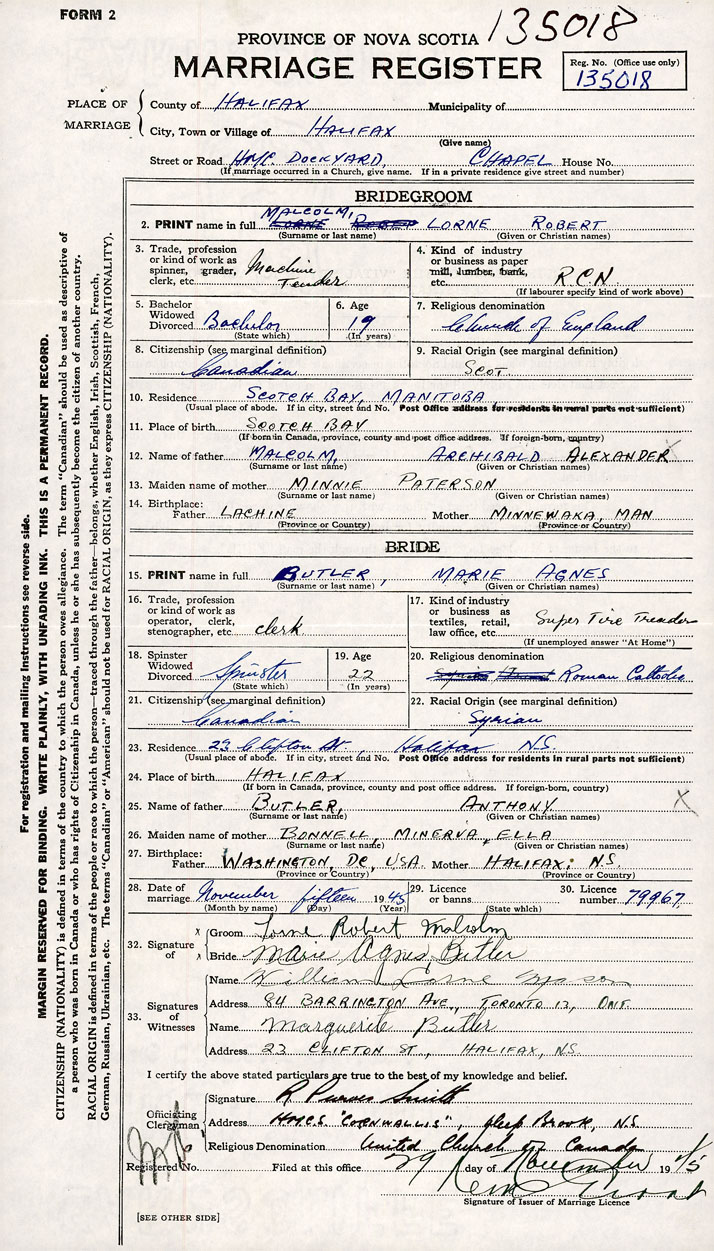 FORM 2
135018
PROVINCE OF NOVA SCOTIA
MARRIAGE REGISTER
Reg. No. (Office use only)
135018
PLACE OF MARRIAGE
County of HALIFAX Municipality of
City, Town or Village of HALIFAX
(Give name)
Street or Road HMC. DOCKYARD, CHAPEL House No.
(If marriage occurred in a Church, give name. If in a private residence give street and number)
BRIDEGROOM
MALCOLM,
2. PRINT name in full LORNE ROBERT
(Surname or last name) (Given or Christian names)
3. Trade, profession or kind of work as spinner, grader, clerk, etc. Machine Tender
4. Kind of industry or business as paper mill, lumber, bank, etc. R.C.N.
(If labourer specify kind of work above)
5. Bachelor Widowed Divorced Bachelor
(State which)
6. Age 19
(In years)
7. Religious denomination
Church of England
8. Citizenship (see marginal definition)
Canadian
9. Racial Origin (see marginal definition)
SCOT.
10. Residence SCOTCH BAY, MANITOBA
(Usual place of abode. If in city, street and No. Post Office address for residents in rural parts not sufficient)
11. Place of birth SCOTCH BAY
(If born in Canada, province, county and post office address. If foreign-born, country)
12. Name of father MALCOLM, ARCHIBALD ALEXANDER X
(Surname or last name) (Given or Christian names)
13. Maiden name of mother MINNIE PATERSON
(Surname or last name) (Given or Christian names)
14. Birthplace:
Father LACHINE Mother MINNEWAKA, MAN
(Province or Country) (Province or Country)
BRIDE
15. PRINT name in full BUTLER, MARIE AGNES
(Surname or last name) (Given or Christian names)
16. Trade, profession or kind of work as operator, clerk, stenographer, etc. clerk
17. Kind of industry or business as textiles, retail, law office, etc. Super Tire Treaders
(If unemployed answer "At Home")
18. Spinster Widowed Divorced Spinster
(State which)
19. Age 22
(In years)
20. Religious denomination
Roman Catholic
21. Citizenship (see marginal definition)
Canadian
22. Racial Origin (see marginal definition)
Syrian
23. Residence 23 Clifton St., Halifax N.S.
(Usual place of abode. If in city, street and No. Post Office address for residents in rural parts not sufficient)
24. Place of birth HALIFAX
(If born in Canada, province, county and post office address. If foreign-born, country)
25. Name of father BUTLER, ANTHONY X
(Surname or last name) (Given or Christian names)
26. Maiden name of mother BONNELL, MINERVA, ELLA
(Surname or last name) (Given or Christian names)
27. Birthplace:
Father WASHINGTON, DC, USA. Mother HALIFAX, N.S.
(Province or Country) (Province or Country)
28. Date of marriage November fifteen 1945
(Month by name) (Day) (Year)
29. Licence or banns
(State which)
30. Licence number 79967
32. Signature of
x Groom Lorne Robert Malcolm
x Bride Marie Agnes Butler
33. Signatures of Witnesses
Name William Lorne
Address 84 BARRINGTON AVE., TORONTO 13, ONT.
Name Marguerite Butler
Address 23 CLIFTON ST., HALIFAX, N.S.
I certify the above stated particulars are true to the best of my knowledge and belief.
Officiating Clergyman
Signature R Purves Smith
Address HMCS "CORNWALLIS", Deep Brook, N.S
Religious Denomination United Church of Canada
Registered No. Filed at this office 29 day of November 1945
Signature of Issuer of Marriage Licence
[SEE OTHER SIDE]
For registration and mailing instructions see reverse side.
MARGIN RESERVED FOR BINDING. WRITE PLAINLY, WITH UNFADING INK. THIS IS A PERMANENT RECORD.
CITIZENSHIP (NATIONALITY) is defined in terms of the country to which the person owes allegiance. The term "Canadian" should be used as descriptive of
a person who was born in Canada or who has rights of Citizenship in Canada, unless he or she has subsequently become the citizen of another country.
RACIAL ORIGIN is defined in terms of the people or race to which the person—traced through the father—belongs, whether English, Irish, Scottish, French,
German, Russian, Ukrainian, etc. The terms "Canadian" or "American" should not be used for RACIAL ORIGIN, as they express CITIZENSHIP (NATIONALITY).